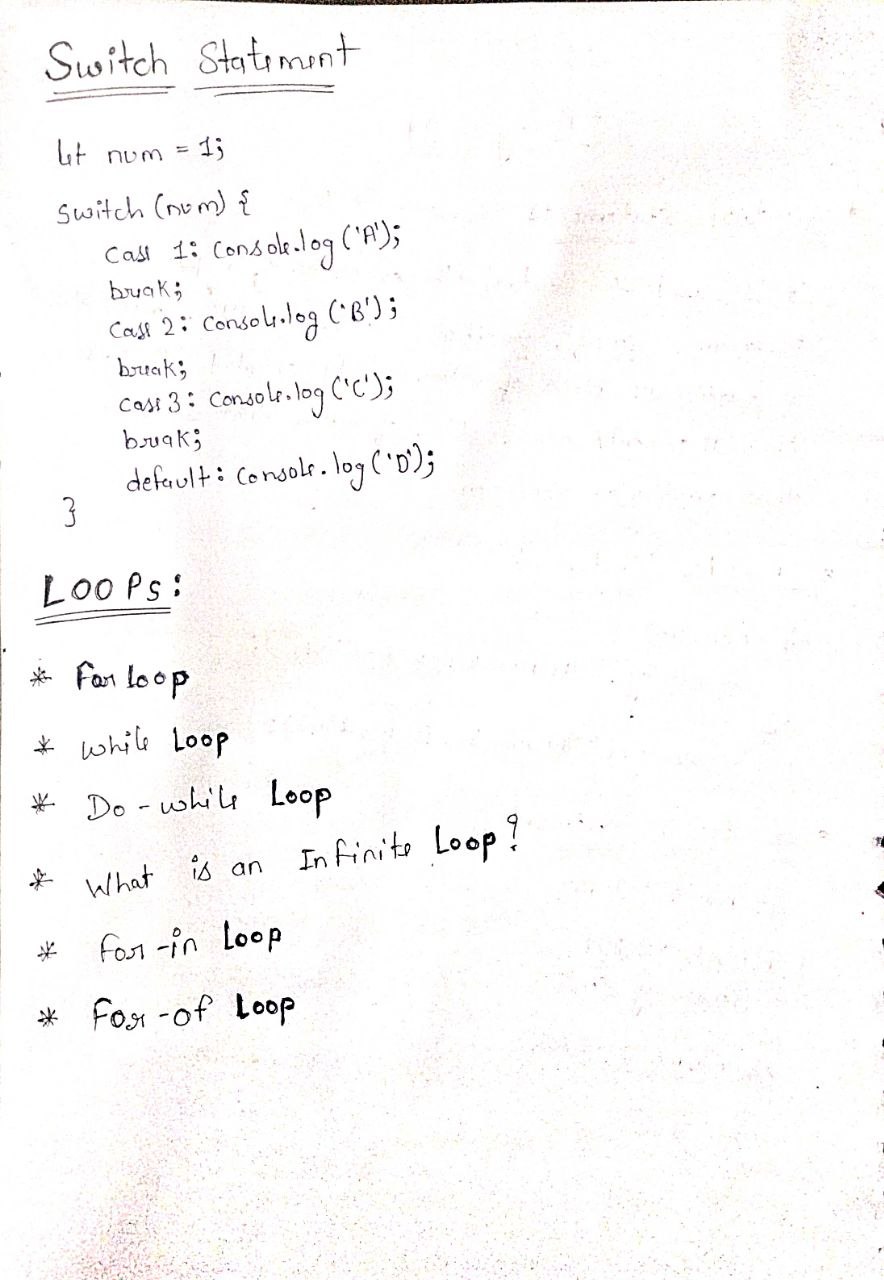 Switch Statement
let num = 1;
switch (num) {
case 1: console.log ('A');
break;
case 2: console.log ('B');
break;
case 3: console.log ('C');
break;
default: console.log ('D');
}
LOOPs:
* For loop
* while Loop
* Do - while Loop
* What is an Infinite Loop?
* for - in Loop
* For - of Loop